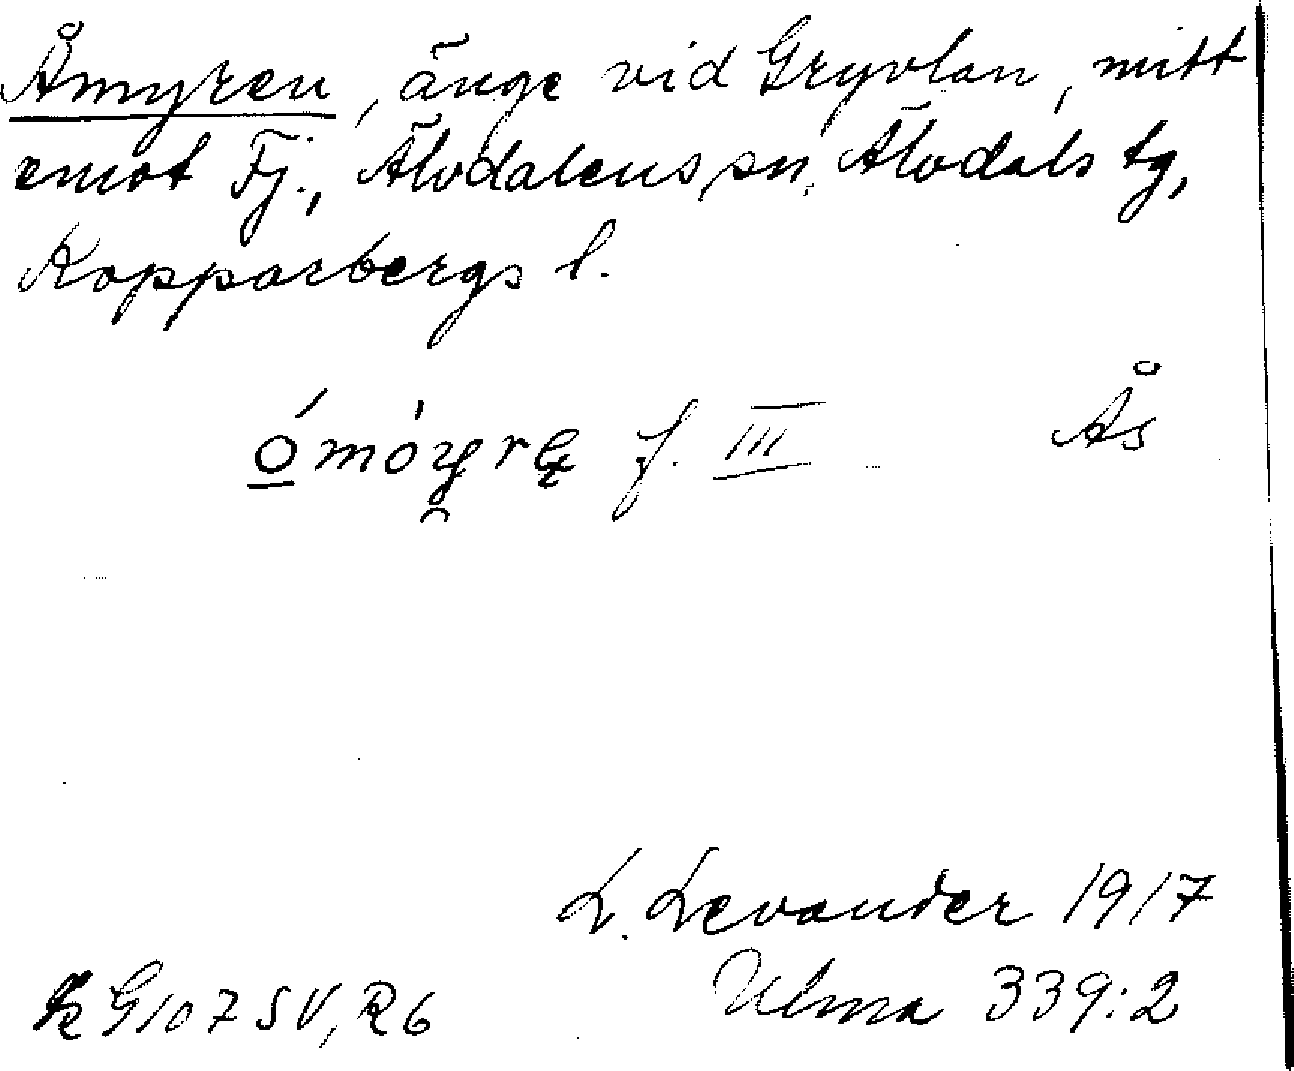 Åmyren, änge vid Gryvlan, mitt
emot Fj., Älvdalens sn, Älvdals tg,
Kopparbergs l.
f. III Ås
L. Levander 1917
G107 SV, R6 Ulma 339:2